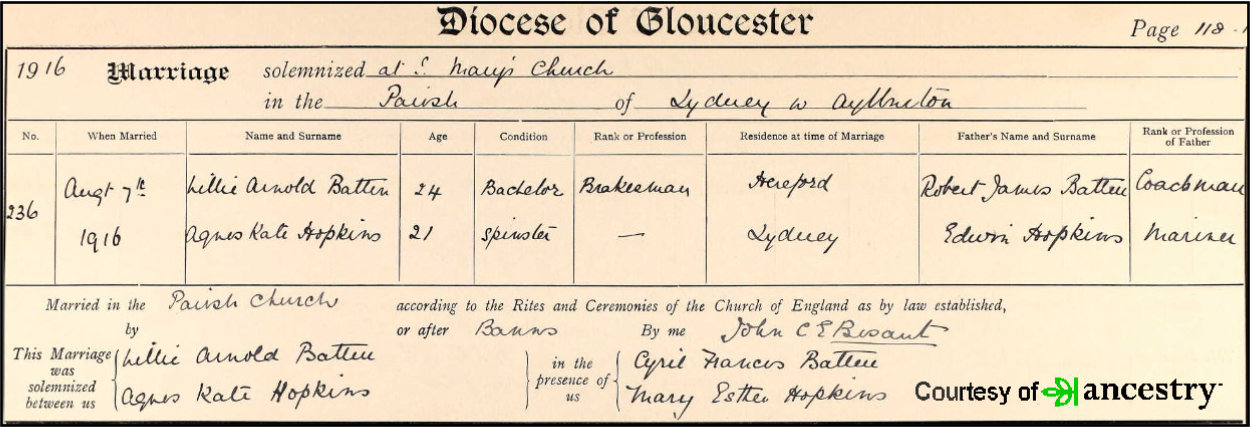 Diocese of Gloucester
Page 118
1916 Marriage solemnized at S. Mary's Church
in the Parish of Lydney w Aylburton
No. When Married Name and Surname Age Condition Rank or Profession Residence at time of Marriage Father's Name and Surname Rank or Profession of Father
236 Augt 7th Lillie Arnold Batten 24 Bachelor Brakesman Hereford Robert James Batten Coachman
1916 Agnes Kate Hopkins 21 Spinster — Lydney Edwin Hopkins Mariner
Married in the Parish Church according to the Rites and Ceremonies of the Church of England as by law established,
by or after Banns By me John C E Besant
This Marriage was solemnized between us
Lillie Arnold Batten
Agnes Kate Hopkins
in the presence of us
Cyril Francis Batten
Mary Esther Hopkins
Courtesy of ancestry